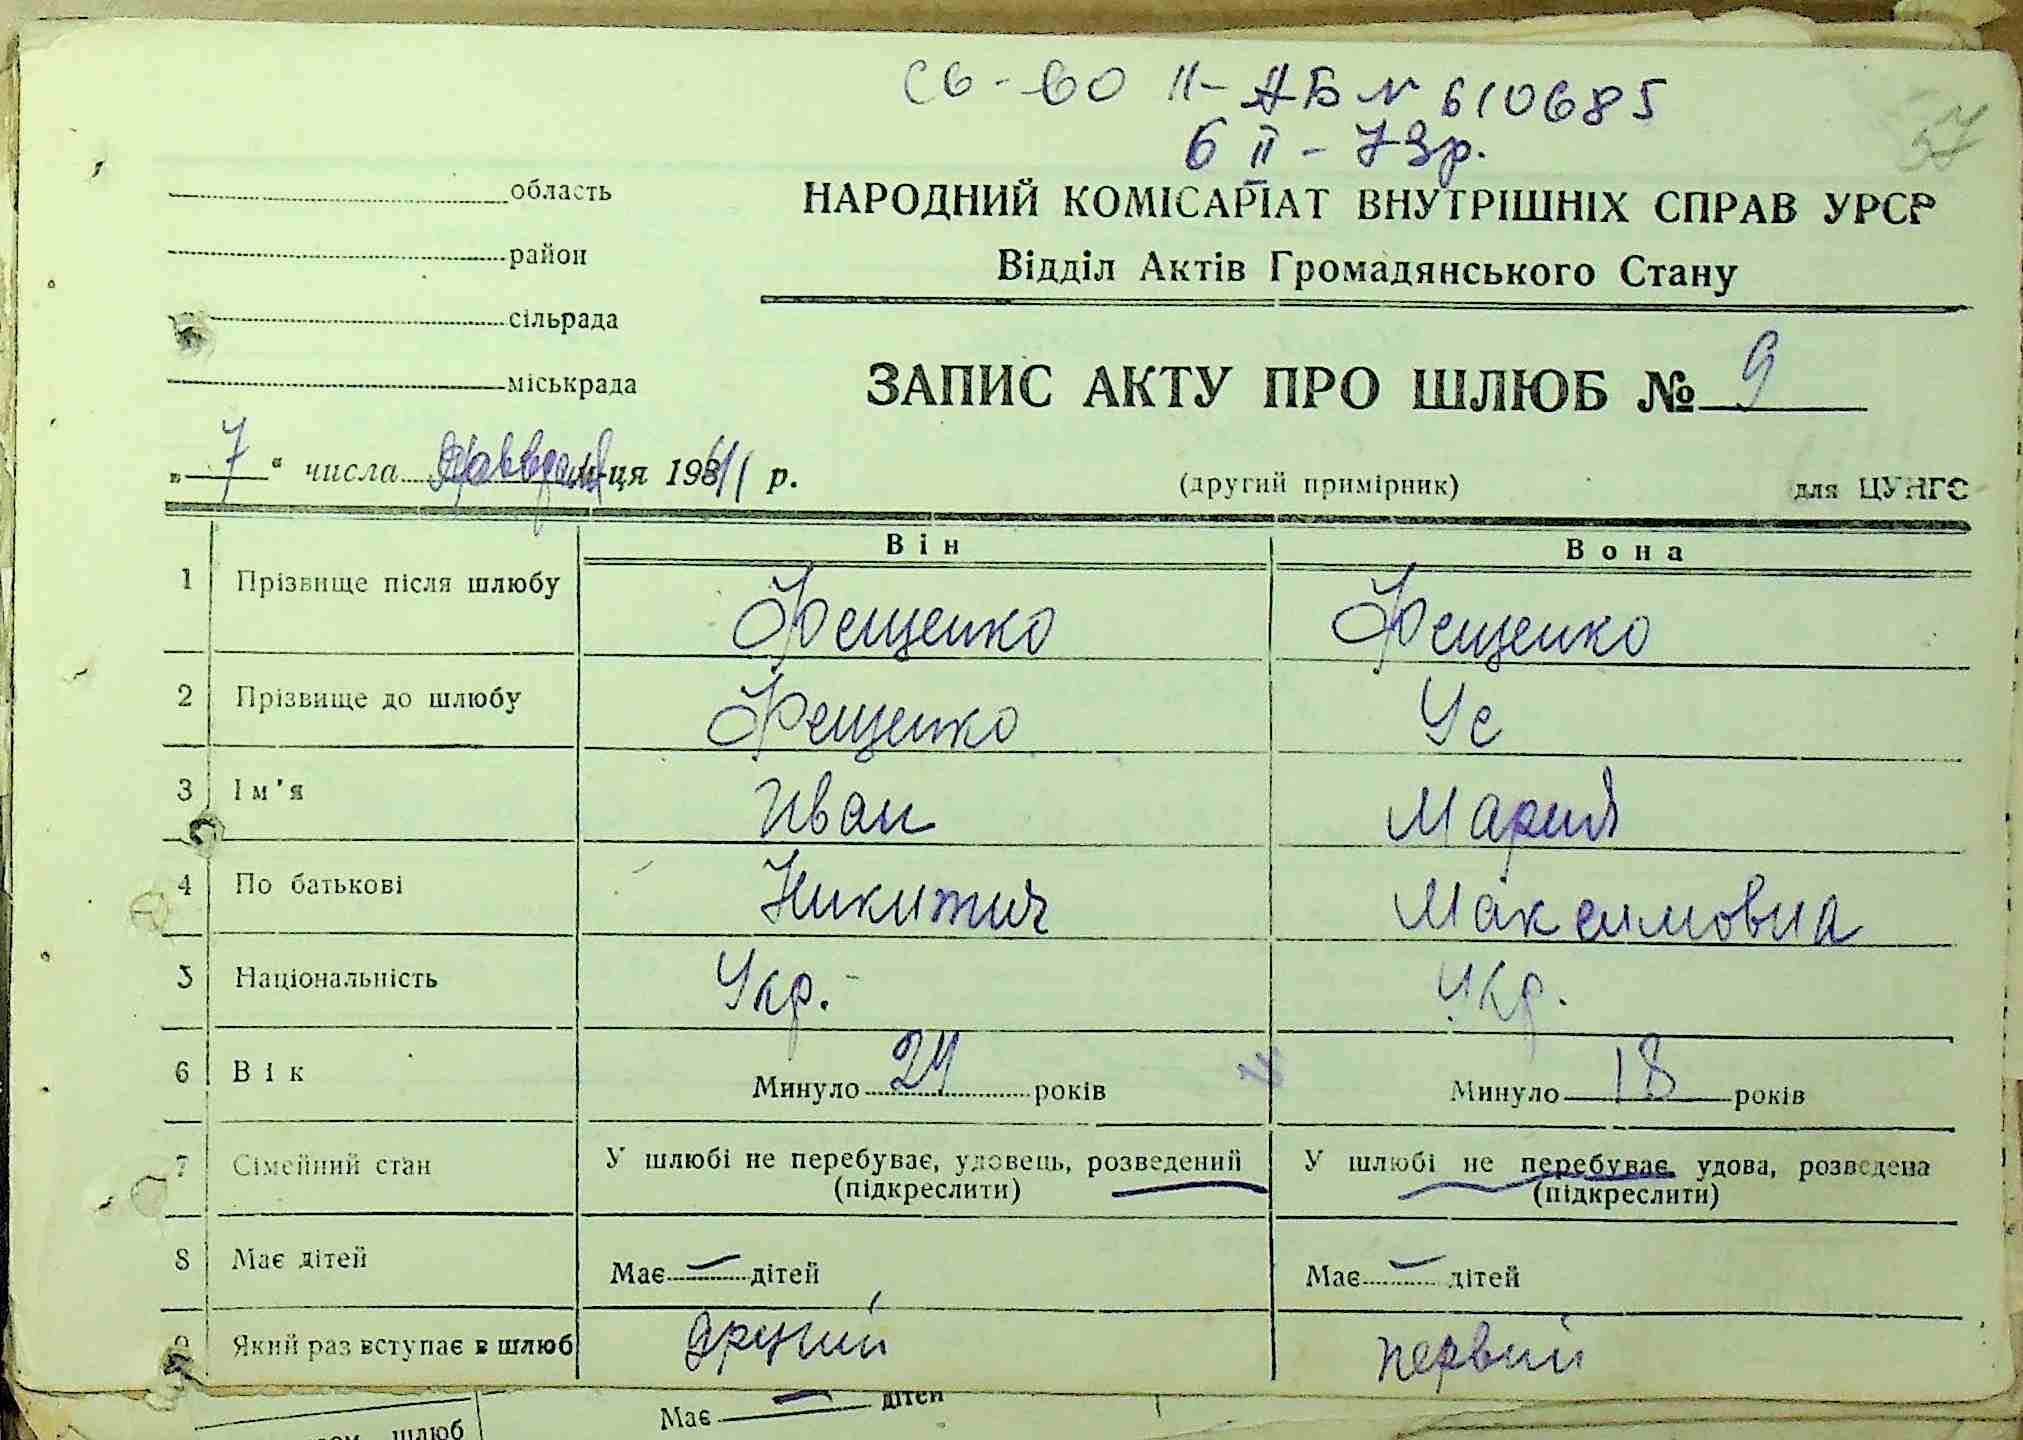 св-во II-АБ № 610685
6 II - 73р.
57
область
район
сільрада
міськрада
НАРОДНИЙ КОМІСАРІАТ ВНУТРІШНІХ СПРАВ УРСР
Відділ Актів Громадянського Стану
ЗАПИС АКТУ ПРО ШЛЮБ № 9
„ 7 “ числа м-ця 1941 р.
(другий примірник)
для ЦУНГО
Він
Вона
1 Прізвище після шлюбу Фещенко Фещенко
2 Прізвище до шлюбу Фещенко Ус
3 Ім'я Иван Мария
4 По батькові Никитич Максимовна
5 Національність Укр. Укр.
6 Вік Минуло 24 років Минуло 18 років
7 Сімейний стан У шлюбі не перебуває, удовець, розведений У шлюбі не перебуває, удова, розведена
(підкреслити) (підкреслити)
8 Має дітей Має — дітей Має — дітей
9 Який раз вступає в шлюб другий первий
Має — дітей
шлюб